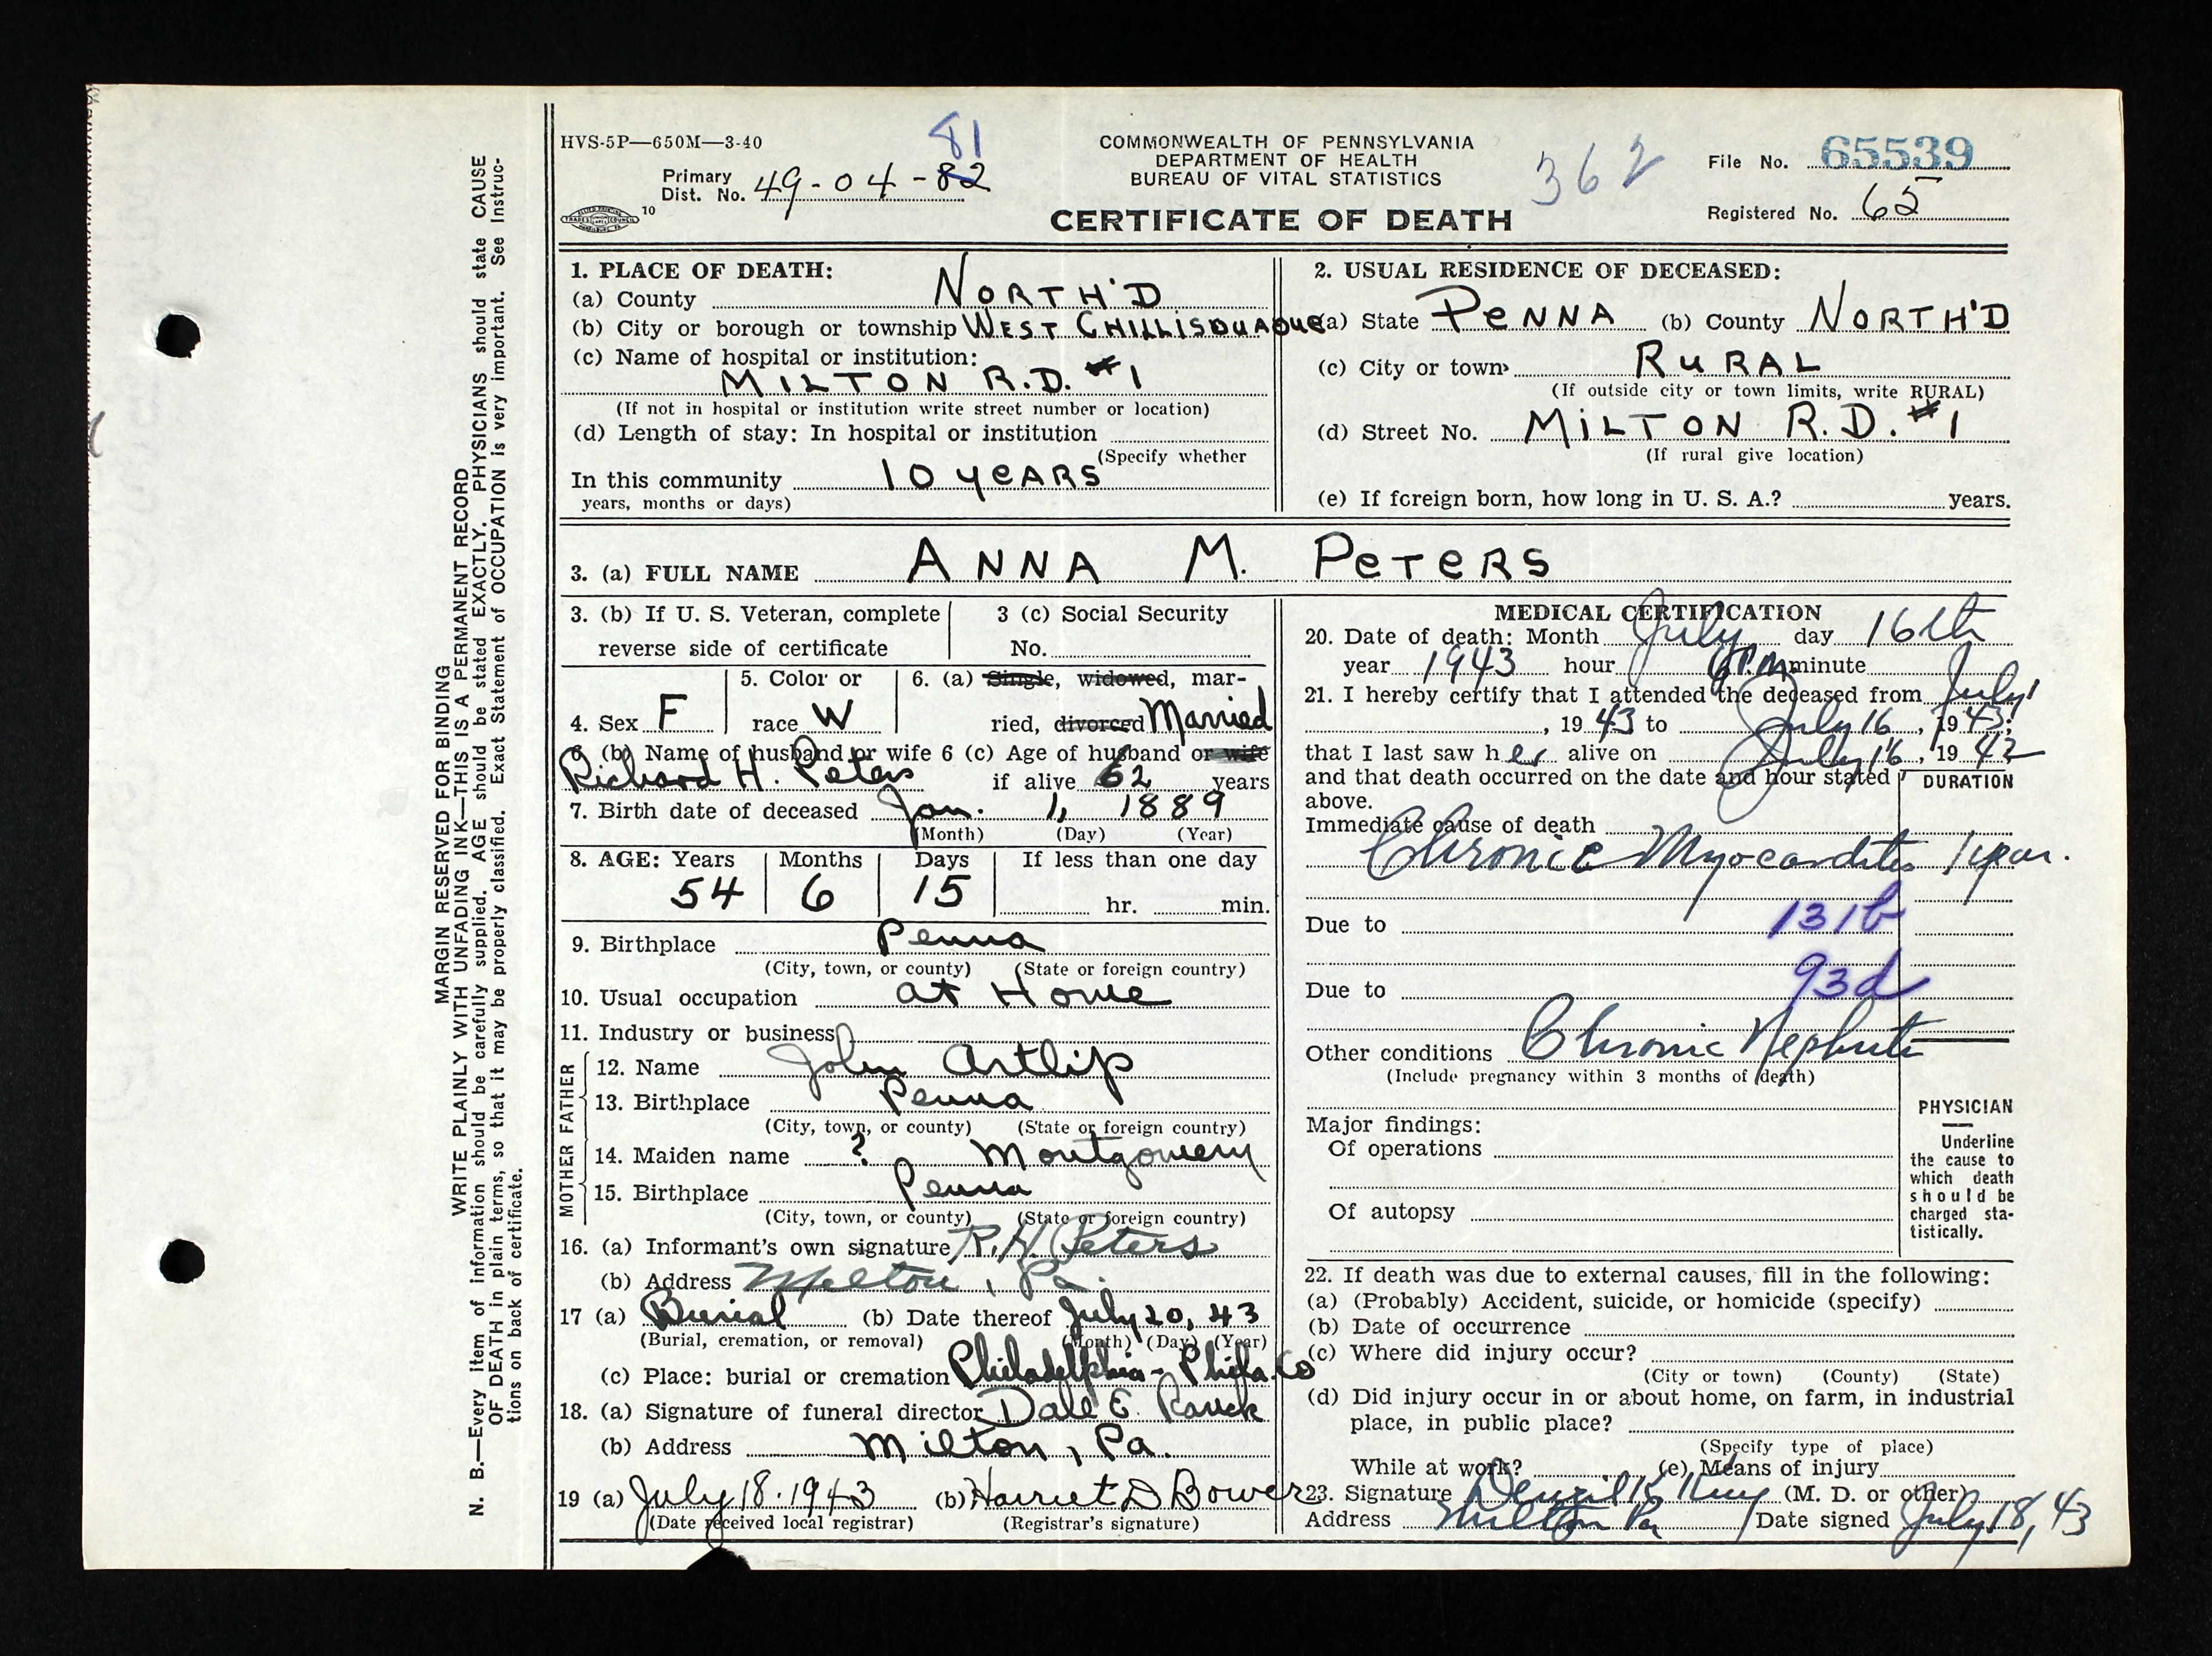 HVS-5P—650M—3-40
81
Primary
Dist. No. 49-04-82
10
COMMONWEALTH OF PENNSYLVANIA
DEPARTMENT OF HEALTH
BUREAU OF VITAL STATISTICS
CERTIFICATE OF DEATH
362
File No. 65539
Registered No. 65
MARGIN RESERVED FOR BINDING
WRITE PLAINLY WITH UNFADING INK—THIS IS A PERMANENT RECORD
N. B.—Every item of information should be carefully supplied. AGE should be stated EXACTLY. PHYSICIANS should state CAUSE
OF DEATH in plain terms, so that it may be properly classified. Exact Statement of OCCUPATION is very important. See Instruc-
tions on back of certificate.
1. PLACE OF DEATH:
(a) County NORTH'D
(b) City or borough or township WEST CHILLISQUAQUE
(c) Name of hospital or institution:
MILTON R.D. #1
(If not in hospital or institution write street number or location)
(d) Length of stay: In hospital or institution
(Specify whether
In this community 10 YeARS
years, months or days)
2. USUAL RESIDENCE OF DECEASED:
(a) State PeNNA (b) County NORTH'D
(c) City or town RuRAL
(If outside city or town limits, write RURAL)
(d) Street No. MiLTON R.D. #1
(If rural give location)
(e) If foreign born, how long in U. S. A.? years.
3. (a) FULL NAME ANNA M. PeTeRS
3. (b) If U. S. Veteran, complete
reverse side of certificate
3 (c) Social Security
No.
4. Sex F
5. Color or
race W
6. (a) Single, widowed, mar-
ried, divorced Married
6. (b) Name of husband or wife 6 (c) Age of husband or wife
Richard H. Peters if alive 62 years
7. Birth date of deceased Jan. 1, 1889
(Month) (Day) (Year)
8. AGE: Years Months Days If less than one day
54 6 15 hr. min.
9. Birthplace Penna
(City, town, or county) (State or foreign country)
10. Usual occupation at Home
11. Industry or business
FATHER
12. Name John Artlip
13. Birthplace Penna
(City, town, or county) (State or foreign country)
MOTHER
14. Maiden name ? Montgomery
15. Birthplace Penna
(City, town, or county) (State or foreign country)
16. (a) Informant's own signature R. H. Peters
(b) Address Milton, Pa.
17 (a) Burial (b) Date thereof July 20, 43
(Burial, cremation, or removal) (Month) (Day) (Year)
(c) Place: burial or cremation Philadelphia - Phila. Co
18. (a) Signature of funeral director Dale E. Ranck
(b) Address Milton, Pa.
19 (a) July 18. 1943 (b) Harriet D Bower
(Date received local registrar) (Registrar's signature)
MEDICAL CERTIFICATION
20. Date of death: Month July day 16th
year 1943 hour 6 P.M. minute
21. I hereby certify that I attended the deceased from July 1
, 19 43 to July 16, 19 43;
that I last saw her alive on July 16, 19 42
and that death occurred on the date and hour stated
above.
DURATION
Immediate cause of death
Chronic Myocarditis 1 year.
Due to 131b
Due to 93d
Other conditions Chronic Nephritis
(Include pregnancy within 3 months of death)
Major findings:
Of operations
Of autopsy
PHYSICIAN
Underline
the cause to
which death
should be
charged sta-
tistically.
22. If death was due to external causes, fill in the following:
(a) (Probably) Accident, suicide, or homicide (specify)
(b) Date of occurrence
(c) Where did injury occur?
(City or town) (County) (State)
(d) Did injury occur in or about home, on farm, in industrial
place, in public place?
(Specify type of place)
While at work? (e) Means of injury
23. Signature (M. D. or other)
Address Milton Pa Date signed July 18, 43